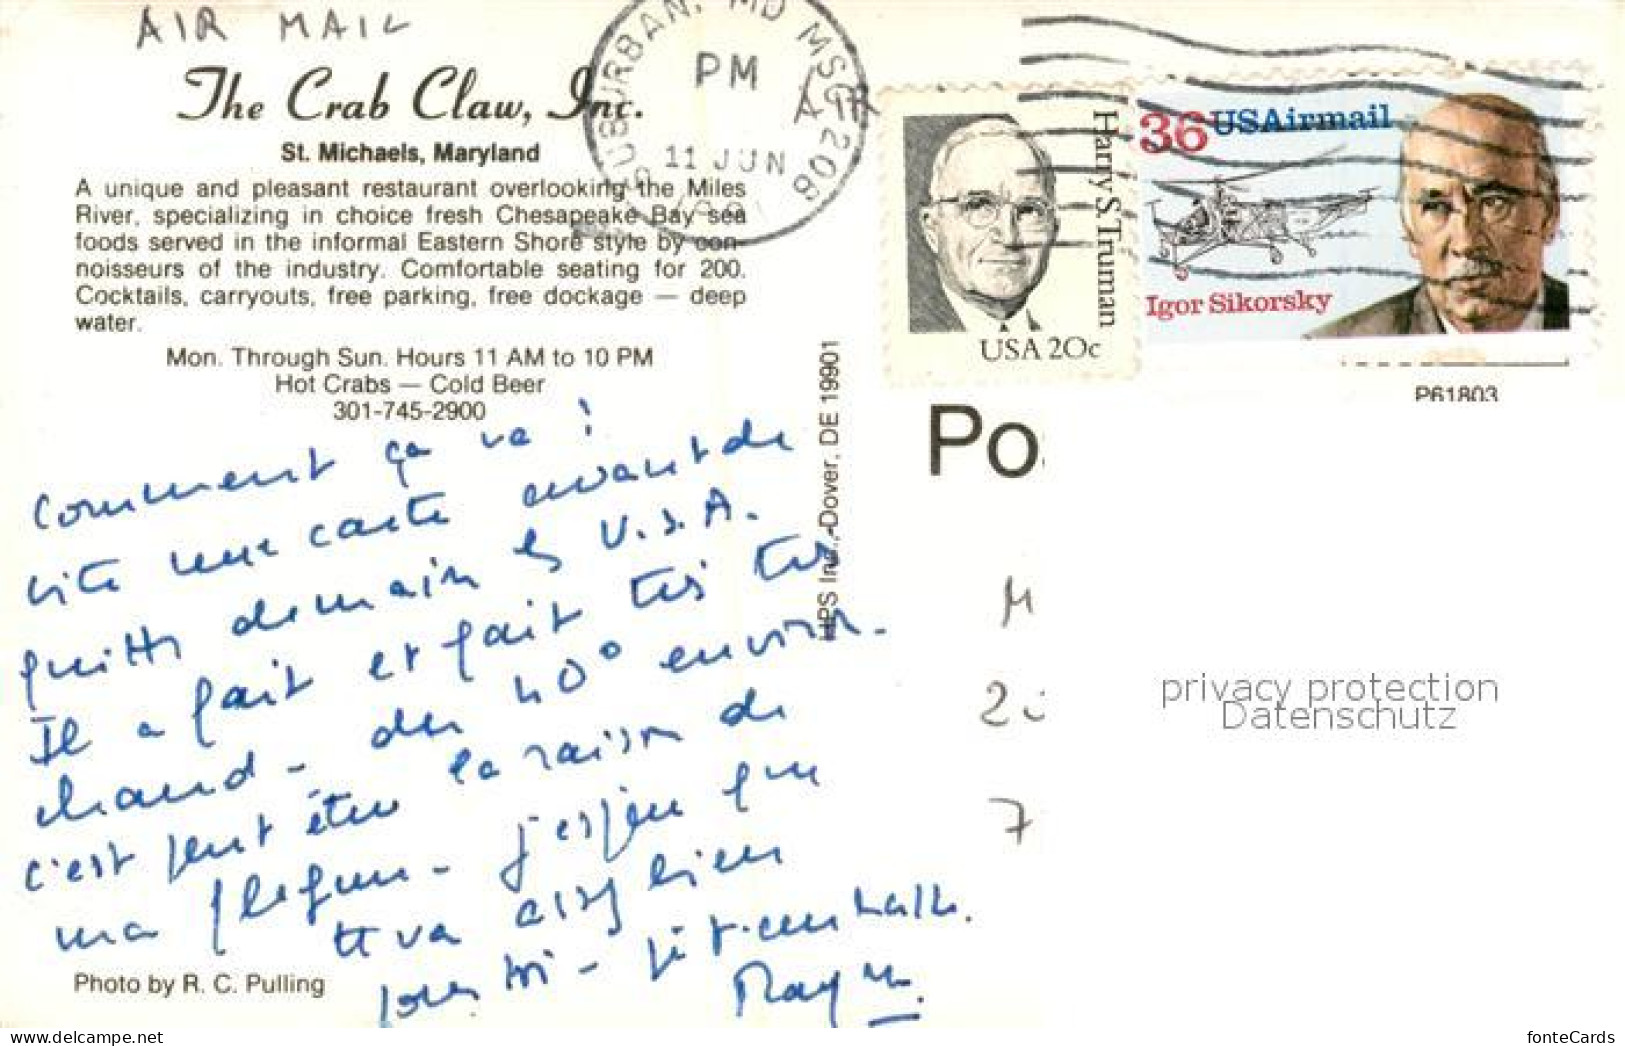 AIR MAIL
The Crab Claw, Inc.
St. Michaels, Maryland
A unique and pleasant restaurant overlooking the Miles
River, specializing in choice fresh Chesapeake Bay sea
foods served in the informal Eastern Shore style by con-
noisseurs of the industry. Comfortable seating for 200.
Cocktails, carryouts, free parking, free dockage — deep
water.
Mon. Through Sun. Hours 11 AM to 10 PM
Hot Crabs — Cold Beer
301-745-2900
SUBURBAN, MD MSC 208
PM
11 JUN
Harry S. Truman
USA 20c
36 USAirmail
Igor Sikorsky
P61803
HPS Inc., Dover, DE 19901
Po
comment ça va !
vite une carte avant de
quitter demain les U.S.A.
Il a fait et fait très très
chaud - du 40° environ.
c'est peut être la raison de
ma flegme - j'espère que
tt va bien
pour toi -
Photo by R. C. Pulling
M
2
7
privacy protection
Datenschutz
www.ansichtskarten-center.de
fonteCards